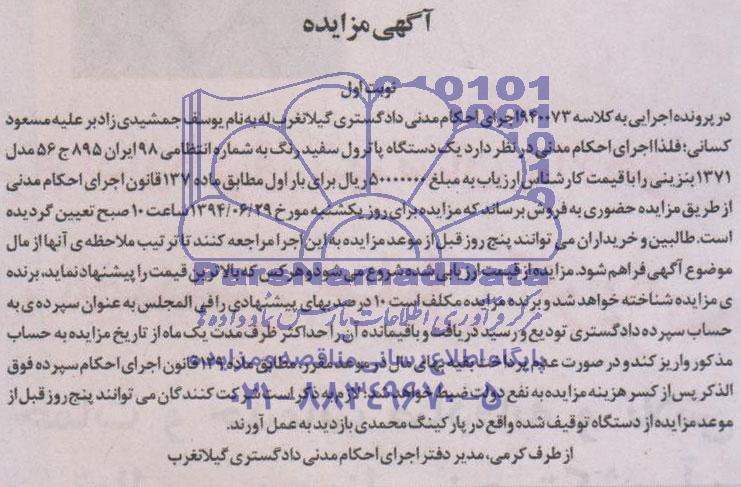 آگهی مزایده
نوبت اول
در پرونده اجرایی به کلاسه ۹۴۰۰۷۳ اجرای احکام مدنی دادگستری گیلانغرب له به نام یوسف جمشیدی زادبر علیه مسعود
کسانی؛ فلذا اجرای احکام مدنی در نظر دارد یک دستگاه پاترول سفید رنگ به شماره انتظامی ۹۸ ایران ۸۹۵ ج ۵۶ مدل
۱۳۷۱ بنزینی را با قیمت کارشناس ارزیاب به مبلغ ۵۰۰۰۰۰۰۰ ریال برای بار اول مطابق ماده ۱۳۷ قانون اجرای احکام مدنی
از طریق مزایده حضوری به فروش برساند که مزایده برای روز یکشنبه مورخ ۱۳۹۴/۰۶/۲۹ ساعت ۱۰ صبح تعیین گردیده
است. طالبین و خریداران می توانند پنج روز قبل از موعد مزایده به این اجرا مراجعه کنند تا ترتیب ملاحظه ی آنها از مال
موضوع آگهی فراهم شود. مزایده از قیمت ارزیابی شده شروع می شود و هر کس که بالاترین قیمت را پیشنهاد نماید، برنده
ParsNamadData
ی مزایده شناخته خواهد شد و برنده مزایده مکلف است ۱۰ درصد بهای پیشنهادی را فی المجلس به عنوان سپرده ی به
مرکز فرآوری اطلاعات پارس نماد داده ها
حساب سپرده دادگستری تودیع و رسید دریافت و باقیمانده آن را حداکثر ظرف مدت یک ماه از تاریخ مزایده به حساب
پایگاه اطلاع رسانی مناقصه و مزایده
مذکور واریز کند و در صورت عدم پرداخت بقیه بهای مال در موعد مقرر، مطابق ماده ۱۲۹ قانون اجرای احکام سپرده فوق
۰۲۱-۸۸۳۴۹۶۷۰-۵
الذکر پس از کسر هزینه مزایده به نفع دولت ضبط خواهد شد؛ لازم به ذکر است شرکت کنندگان می توانند پنج روز قبل از
موعد مزایده از دستگاه توقیف شده واقع در پارکینگ محمدی بازدید به عمل آورند.
از طرف کرمی، مدیر دفتر اجرای احکام مدنی دادگستری گیلانغرب